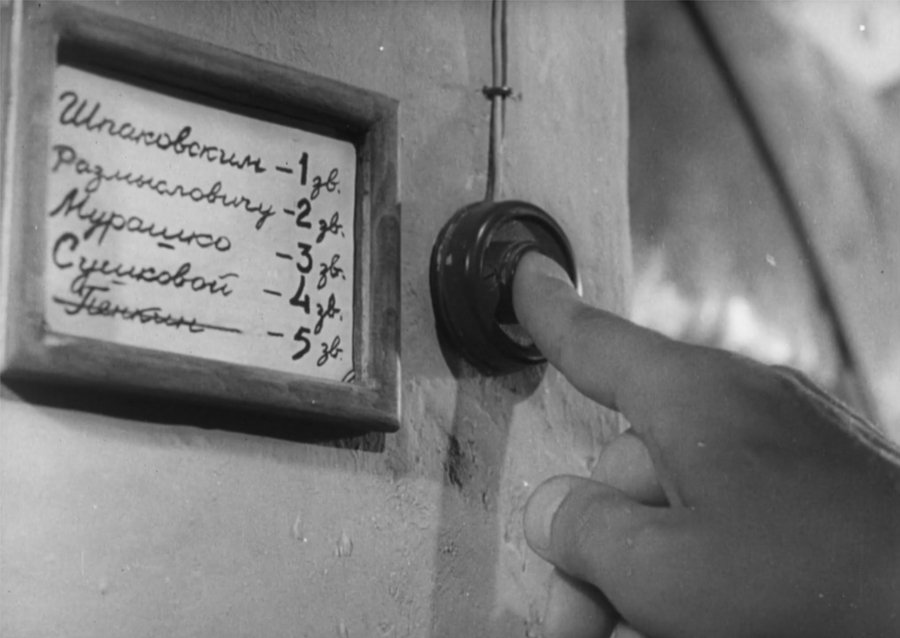 Шпаковским – 1 зв.
Размысловичу – 2 зв.
Мурашко – 3 зв.
Сушковой – 4 зв.
Пенкин – 5 зв.